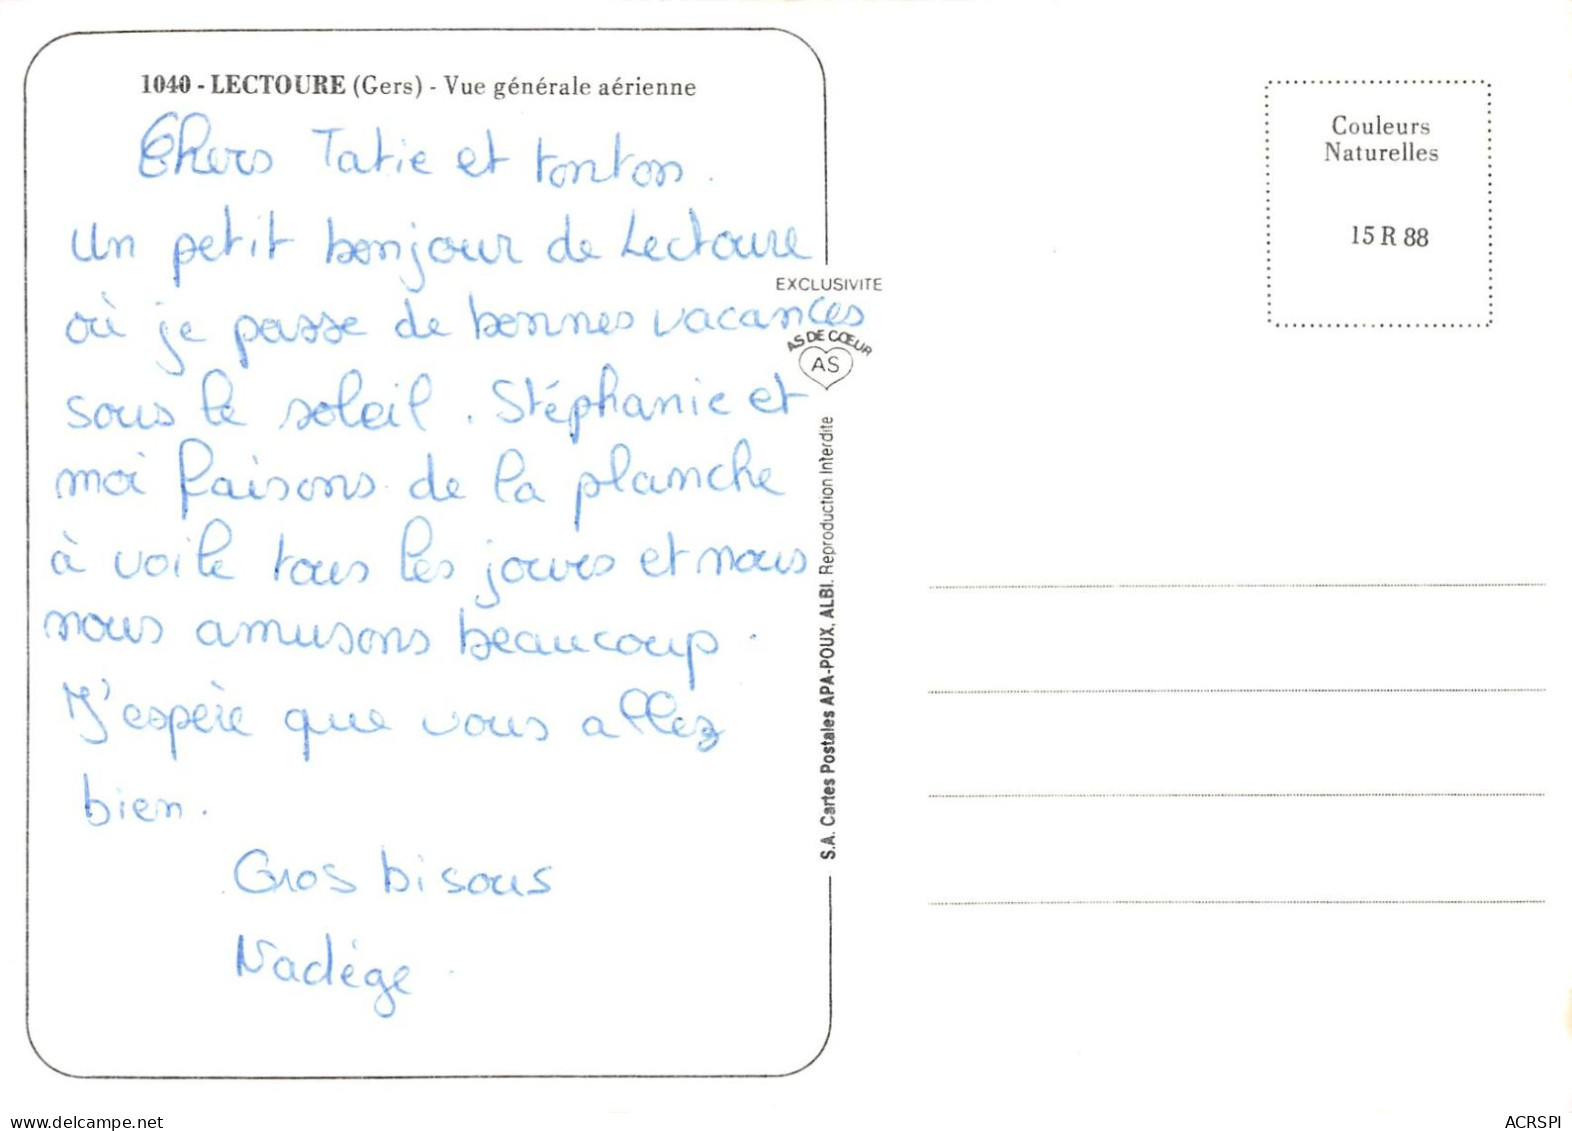 1040 - LECTOURE (Gers) - Vue générale aérienne
Chers Tatie et tonton.
Un petit bonjour de Lectoure
où je passe de bonnes vacances
sous le soleil. Stéphanie et
moi faisons de la planche
à voile tous les jours et nous
nous amusons beaucoup.
J'espère que vous allez
bien.
Gros bisous
Nadége.
EXCLUSIVITE
AS DE CŒUR
AS
S.A. Cartes Postales APA-POUX, ALBI. Reproduction Interdite
Couleurs
Naturelles
15 R 88
www.delcampe.net
ACRSPI